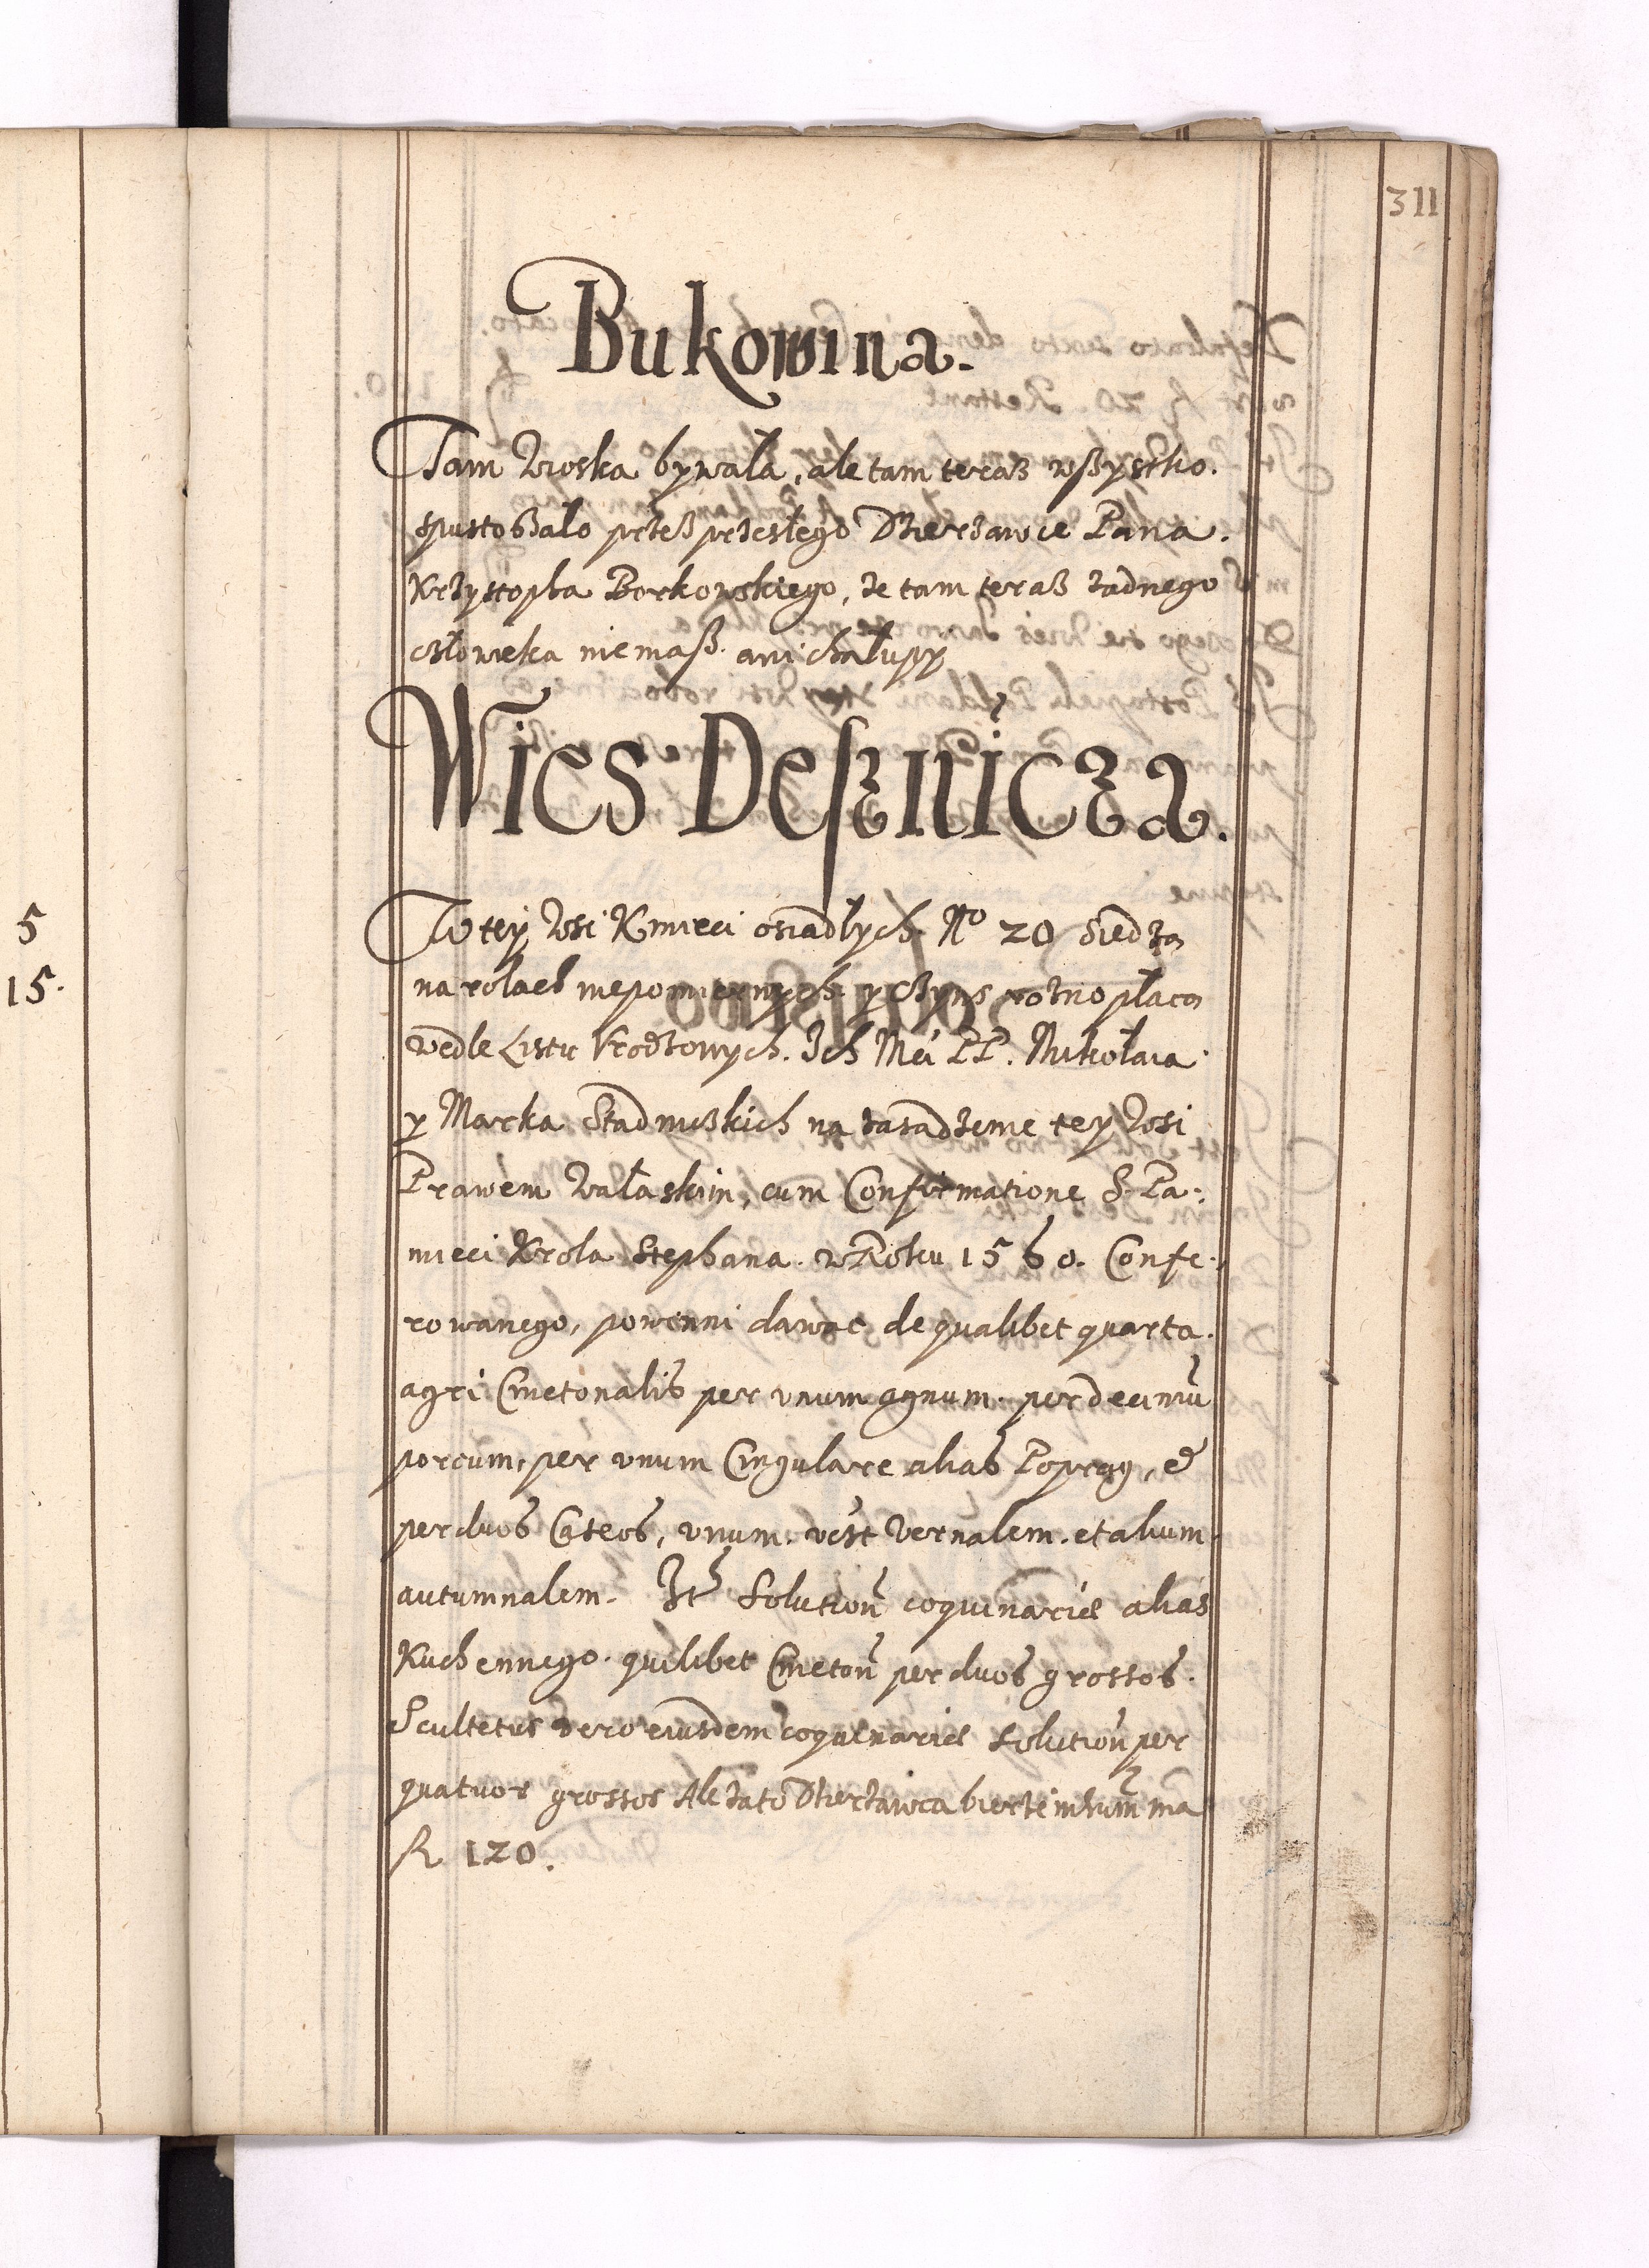 311
Bukowina.
Tam Wioska bywała, ale tam teraß wßystko.
spustoßało przeß przesłego Dzierzawce Pana.
Krzysztopha Borkowskiego, że tam teraß żadnego
człowieka niemaß. ani chałupy
Wies Desznicza.
W tey Wsi Kmieci osiadłych. No 20 siedzą
na rolach niepomiernych. y czyns rożno płacą
wedle Listu Vrodzonych. Ich Mći PP. Mikołaia
y Marka Stadnickich na zasadzenie tey Wsi
Prawem Wałaskim, cum Confirmatione S. Pa:
mieci Krola Stephana. w Roku 1580. Confe:
rowanego, powinni dawac de qualibet quarta.
agri Cmetonalis per vnum agnum. per decimū
porcum, per vnum Cingulare alias Popręg, et
per duos Caseos, vnum. vist vernalem. et alium.
autumnalem. It Solution coquinariæ alias
Kuchennego. quilibet Cmeton per duos grossos.
Scultetus vero eiusdem coquinariæ Solution per
quatuor grossos Ale zato Dzierzawca bierze in sum̄ma
fl 120.
5
15.